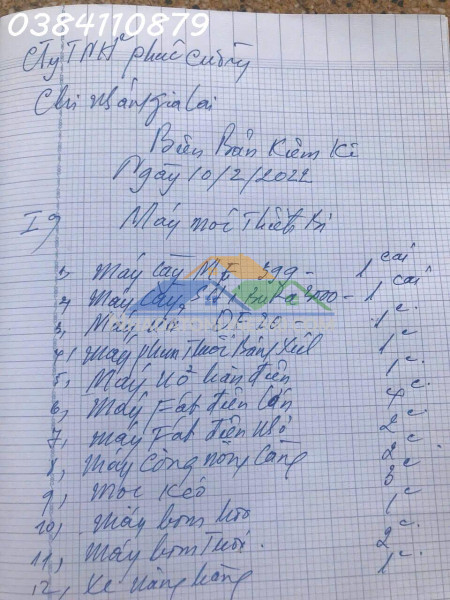 0384110879
Cty TNHH phúc cường
Chi nhánh gia lai
Biên Bản Kiểm Kê
Ngày 10/2/2022
I, Máy móc Thiết Bị
1, Máy Cày MF 399 - 1 cái
2, Máy Cày 400 - 1 cái
3, Máy 1 c.
4, Máy phun Thuốc Bảng Xul 1 c
5, Máy nổ hàn điện 1 c.
6, Máy Fát điện lớn 4 c.
7, máy Fát điện nhỏ 2 c
8, Máy Công nông Càng 2 c
9, moc Kéo 3 c
10, máy bơm hơi 1 c
11, Máy bơm Tưới. 2 c.
12, Xe nâng hàng 1 c